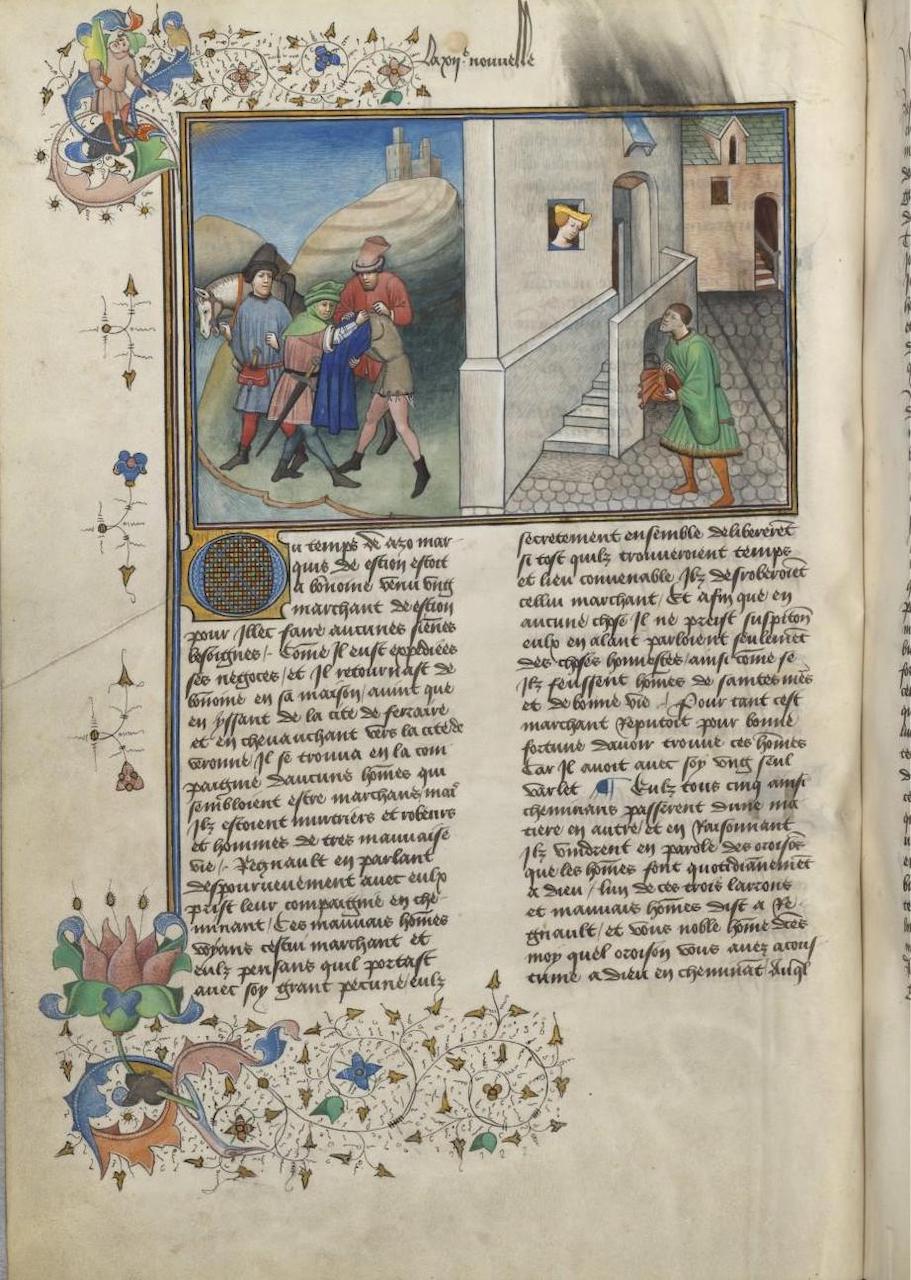 La xii.e nouvelle
Du temps de azo mar-
quis de estion estoit
a bonōme venu vng
marchant de estion
pour illec faire aucunes siēnes
besoignes / Cōme Il eust expediees
ses negoces / et Il retournast de
bonōme en sa maison / auint que
en yssant de la cite de ferrare
et en cheuauchant vers la cite de
veronne Il se trouua en la com
paignie daucuns hōmes qui
sembloient estre marchans / mais
Ilz estoient murtriers et robeurs
et hommes de tres mauuaise
vie / Regnault en parlant
despourueuement auec eulx
prist leur compaignie en che
minant / Ces mauuais hōmes
voyans cestui marchant et
eulz pensans quil portast
auec soy grant pecune eulz
secretement ensemble delibererēt
si tost quilz trouueroient temps
et lieu conuenable Ilz desroberoiēt
cellui marchant / Et afin que en
aucune chose Il ne preist suspicōn
eulx en alant parloient seulemēt
des choses honnestes / ainsi cōme se
Ilz feussent hōmes de saintes meᵘs
et de bonne vie / Pour tant cest
marchant Reputoit pour bonne
fortune dauoir trouue ces hōmes
Car Il auoit auec soy vng seul
varlet ¶ Eulz tous cinq ainsi
cheminans passerent dune ma
tiere en autre / et en Raisonnant
Ilz vindrent en parole des oroisōs
que les hōmes font quotidiānemēt
a dieu / lun de ces trois larrons
et mauuais hōmes dist a Re-
gnault / et vous noble hōme dites
moy quel oroison vous auez acous
tume a dieu en chemināt / Auql